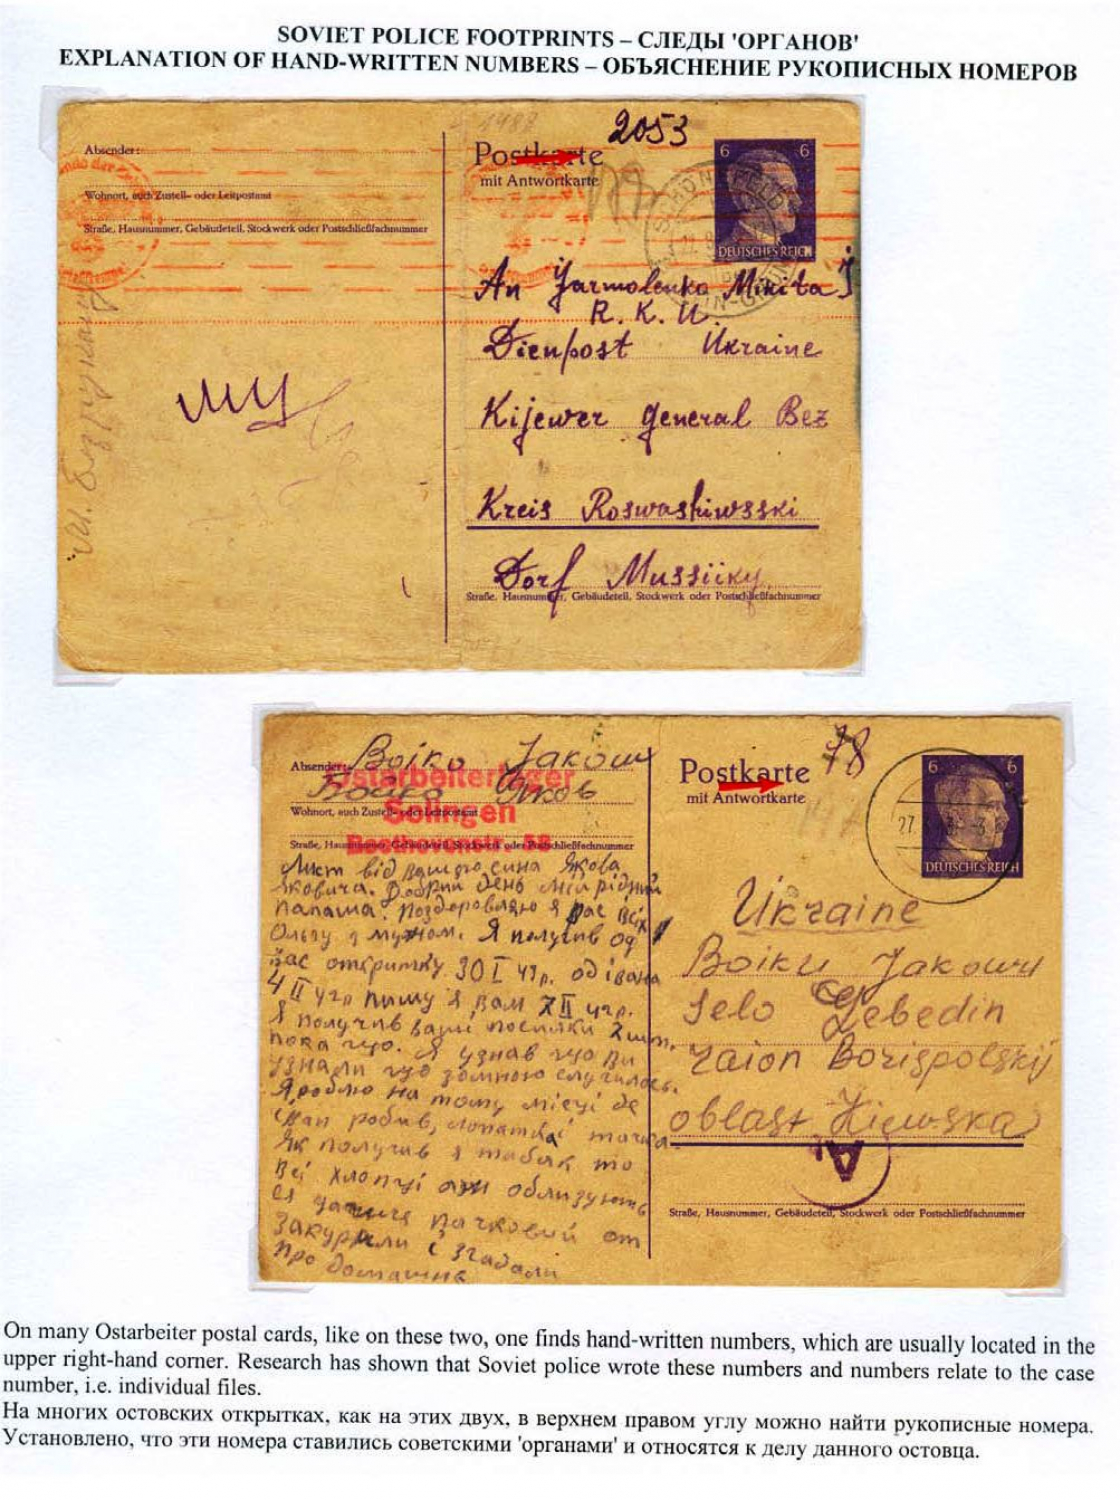 SOVIET POLICE FOOTPRINTS – СЛЕДЫ 'ОРГАНОВ'
EXPLANATION OF HAND-WRITTEN NUMBERS – ОБЪЯСНЕНИЕ РУКОПИСНЫХ НОМЕРОВ
Absender:
Wohnort, auch Zustell- oder Leitpostamt
Straße, Hausnummer, Gebäudeteil, Stockwerk oder Postschließfachnummer
2053
Postkarte
mit Antwortkarte
6 6
DEUTSCHES REICH
An Jarmolenko Mikita J
R. K. U.
Dienpost Ukraine
Kijewer General Bez
Kreis Roswashiwsski
Dorf Mussiiky
Straße, Hausnummer, Gebäudeteil, Stockwerk oder Postschließfachnummer
Absender: Boiko Jakow
Бойко Яков
Ostarbeiterlager
Solingen
Beethovenstr. 58
Wohnort, auch Zustell- oder Leitpostamt
Straße, Hausnummer, Gebäudeteil, Stockwerk oder Postschließfachnummer
Лист від вашого сина Якова
Яковича. Добрий день мій рідний
папаша. Поздоровляю я вас всіх
Ольгу з мужом. Я получив од
вас откритку 30 I 43р. од івана
4 II 43р пишу я вам 7 II 43р.
Я получив ваші посилки 2 шт.
пока що. Я узнав що ви
узнали що зомною случилось.
Я роблю на тому місці де
Іван робив, лопатка і тачка
Як получив я табак то
всі хлопці аж облизують
ся
закурили і згадали
про домашнє
Postkarte 78
mit Antwortkarte
6 6
DEUTSCHES REICH
27
Ukraine
Boiku Jakowu
Selo Lebedin
raion Borispolskij
oblast Kiewska
A
Straße, Hausnummer, Gebäudeteil, Stockwerk oder Postschließfachnummer
On many Ostarbeiter postal cards, like on these two, one finds hand-written numbers, which are usually located in the
upper right-hand corner. Research has shown that Soviet police wrote these numbers and numbers relate to the case
number, i.e. individual files.
На многих остовских открытках, как на этих двух, в верхнем правом углу можно найти рукописные номера.
Установлено, что эти номера ставились советскими 'органами' и относятся к делу данного остовца.